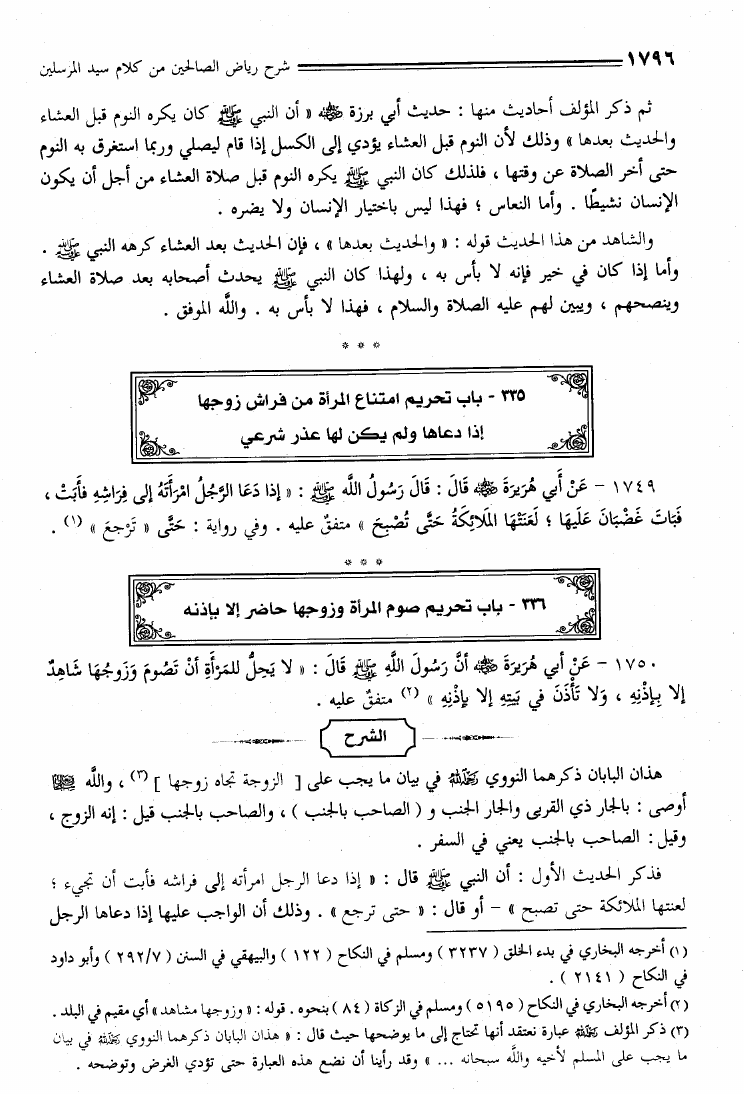 ١٧٩٦ شرح رياض الصالحين من كلام سيد المرسلين
ثم ذكر المؤلف أحاديث منها : حديث أبي برزة رضي الله عنه « أن النبي ﷺ كان يكره النوم قبل العشاء
والحديث بعدها » وذلك لأن النوم قبل العشاء يؤدي إلى الكسل إذا قام ليصلي وربما استغرق به النوم
حتى أخر الصلاة عن وقتها ، فلذلك كان النبي ﷺ يكره النوم قبل صلاة العشاء من أجل أن يكون
الإنسان نشيطًا . وأما النعاس ؛ فهذا ليس باختيار الإنسان ولا يضره .
والشاهد من هذا الحديث قوله : « والحديث بعدها » ، فإن الحديث بعد العشاء كرهه النبي ﷺ .
وأما إذا كان في خير فإنه لا بأس به ، ولهذا كان النبي ﷺ يحدث أصحابه بعد صلاة العشاء
وينصحهم ، ويبين لهم عليه الصلاة والسلام ، فهذا لا بأس به . واللَّه الموفق .
* * *
٣٣٥ - باب تحريم امتناع المرأة من فراش زوجها
إذا دعاها ولم يكن لها عذر شرعي
١٧٤٩ - عَنْ أَبي هُرَيرَةَ رضي الله عنه قَالَ : قَالَ رَسُولُ اللَّه ﷺ : « إذا دَعَا الرَّجُلُ امْرَأَتَهُ إلى فِرَاشِهِ فَأَبَتْ ،
فَبَاتَ غَضْبَانَ عَلَيهَا ؛ لَعَنَتْهَا المَلائِكَةُ حَتَّى تُصْبِحَ » متفقٌ عليه . وفي رواية : حَتَّى « تَرْجعَ » (١) .
* * *
٣٣٦ - باب تحريم صوم المرأة وزوجها حاضر إلا بإذنه
١٧٥٠ - عَنْ أبي هُرَيرَةَ رضي الله عنه أنَّ رَسُولَ اللَّهِ ﷺ قَالَ : « لا يَحِلُّ للمَرْأَةِ أنْ تَصُومَ وَزَوجُهَا شَاهِدٌ
إلا بِإذْنِهِ ، وَلا تَأْذَنَ في بَيتِهِ إلا بِإِذْنِهِ » (٢) متفقٌ عليه .
الشرح
هذان البابان ذكرهما النووي رحمه الله في بيان ما يجب على [ الزوجة تجاه زوجها ] (٣) ، واللَّه
أوصى : بالجار ذي القربى والجار الجنب و ( الصاحب بالجنب ) ، والصاحب بالجنب قيل : إنه الزوج ،
وقيل : الصاحب بالجنب يعني في السفر .
فذكر الحديث الأول : أن النبي ﷺ قال : « إذا دعا الرجل امرأته إلى فراشه فأبت أن تجيء ؛
لعنتها الملائكة حتى تصبح » – أو قال : « حتى ترجع » . وذلك أن الواجب عليها إذا دعاها الرجل
(١) أخرجه البخاري في بدء الخلق ( ٣٢٣٧ ) ومسلم في النكاح ( ١٢٢ ) والبيهقي في السنن ( ٢٩٢/٧ ) وأبو داود
في النكاح ( ٢١٤١ ) .
(٢) أخرجه البخاري في النكاح ( ٥١٩٥ ) ومسلم في الزكاة ( ٨٤ ) بنحوه . قوله : « وزوجها مشاهد » أي مقيم في البلد .
(٣) ذكر المؤلف رحمه الله عبارة نعتقد أنها تحتاج إلى ما يوضحها حيث قال : « هذان البابان ذكرهما النووي رحمه الله في بيان
ما يجب على المسلم لأخيه واللَّه سبحانه ... » وقد رأينا أن نضع هذه العبارة حتى تؤدي الغرض وتوضحه .